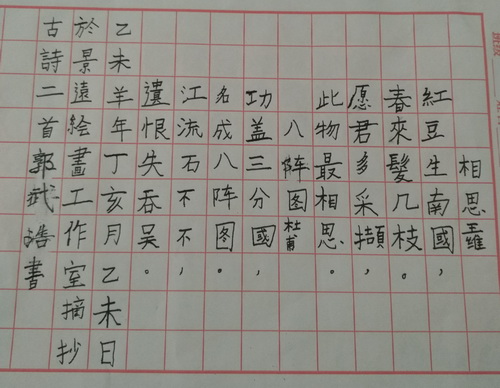 相思 王維
紅豆生南國，
春來髮几枝。
愿君多采擷，
此物最相思。
八阵图 杜甫
功盖三分國，
名成八阵图。
江流石不不，
遺恨失吞吴。
乙未羊年丁亥月乙未日
於景遠繪畫工作室摘抄
古詩二首郭武浩書